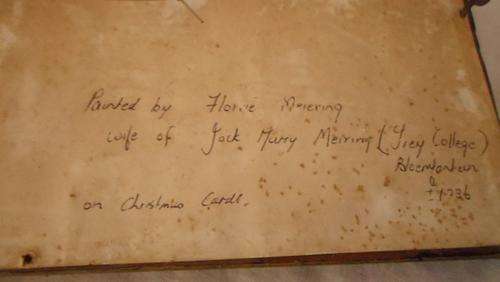 Painted by Florrie Meiring
wife of Jock Murry Meiring (Grey College)
Bloemfontein
on Christmas Cards.